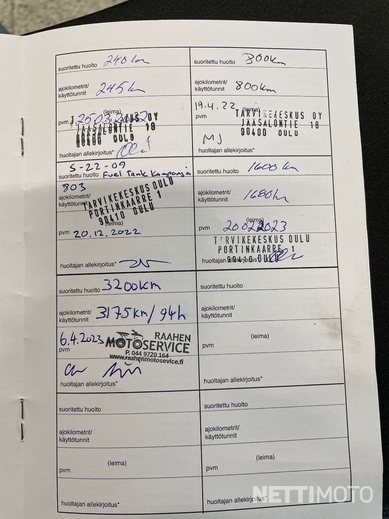 suoritettu huolto 240 km
ajokilometrit/
käyttötunnit 245 km
(leima)
pvm 25.03.2022
JÄÄSALONTIE 18
90400 OULU
huoltajan allekirjoitus*
suoritettu huolto 800km
ajokilometrit/
käyttötunnit 800km
19.4.22 (leima)
pvm TARVIKEKESKUS OY
JÄÄSALONTIE 18
90400 OULU
MJ
huoltajan allekirjoitus*
5-22-09
suoritettu huolto Fuel Tank Kampanja
803
ajokilometrit/
käyttötunnit
TARVIKEKESKUS OULU
PORTINKAARRE 1
90410 OULU
pvm 20.12.2022
huoltajan allekirjoitus*
suoritettu huolto 1600 km
ajokilometrit/
käyttötunnit
(leima)
pvm 20.02.2023
TARVIKEKESKUS OULU
PORTINKAARRE 1
90410 OULU
huoltajan allekirjoitus*
suoritettu huolto 3200km
ajokilometrit/
käyttötunnit 3175km/94h
6.4.2023
pvm
RAAHEN
MOTOSERVICE
P. 044 9720 164
www.raahenmotoservice.fi
huoltajan allekirjoitus*
suoritettu huolto
ajokilometrit/
käyttötunnit
(leima)
pvm
huoltajan allekirjoitus*
suoritettu huolto
ajokilometrit/
käyttötunnit
(leima)
pvm
huoltajan allekirjoitus*
suoritettu huolto
ajokilometrit/
käyttötunnit
(leima)
pvm
huoltajan allekirjoitus*
NETTIMOTO